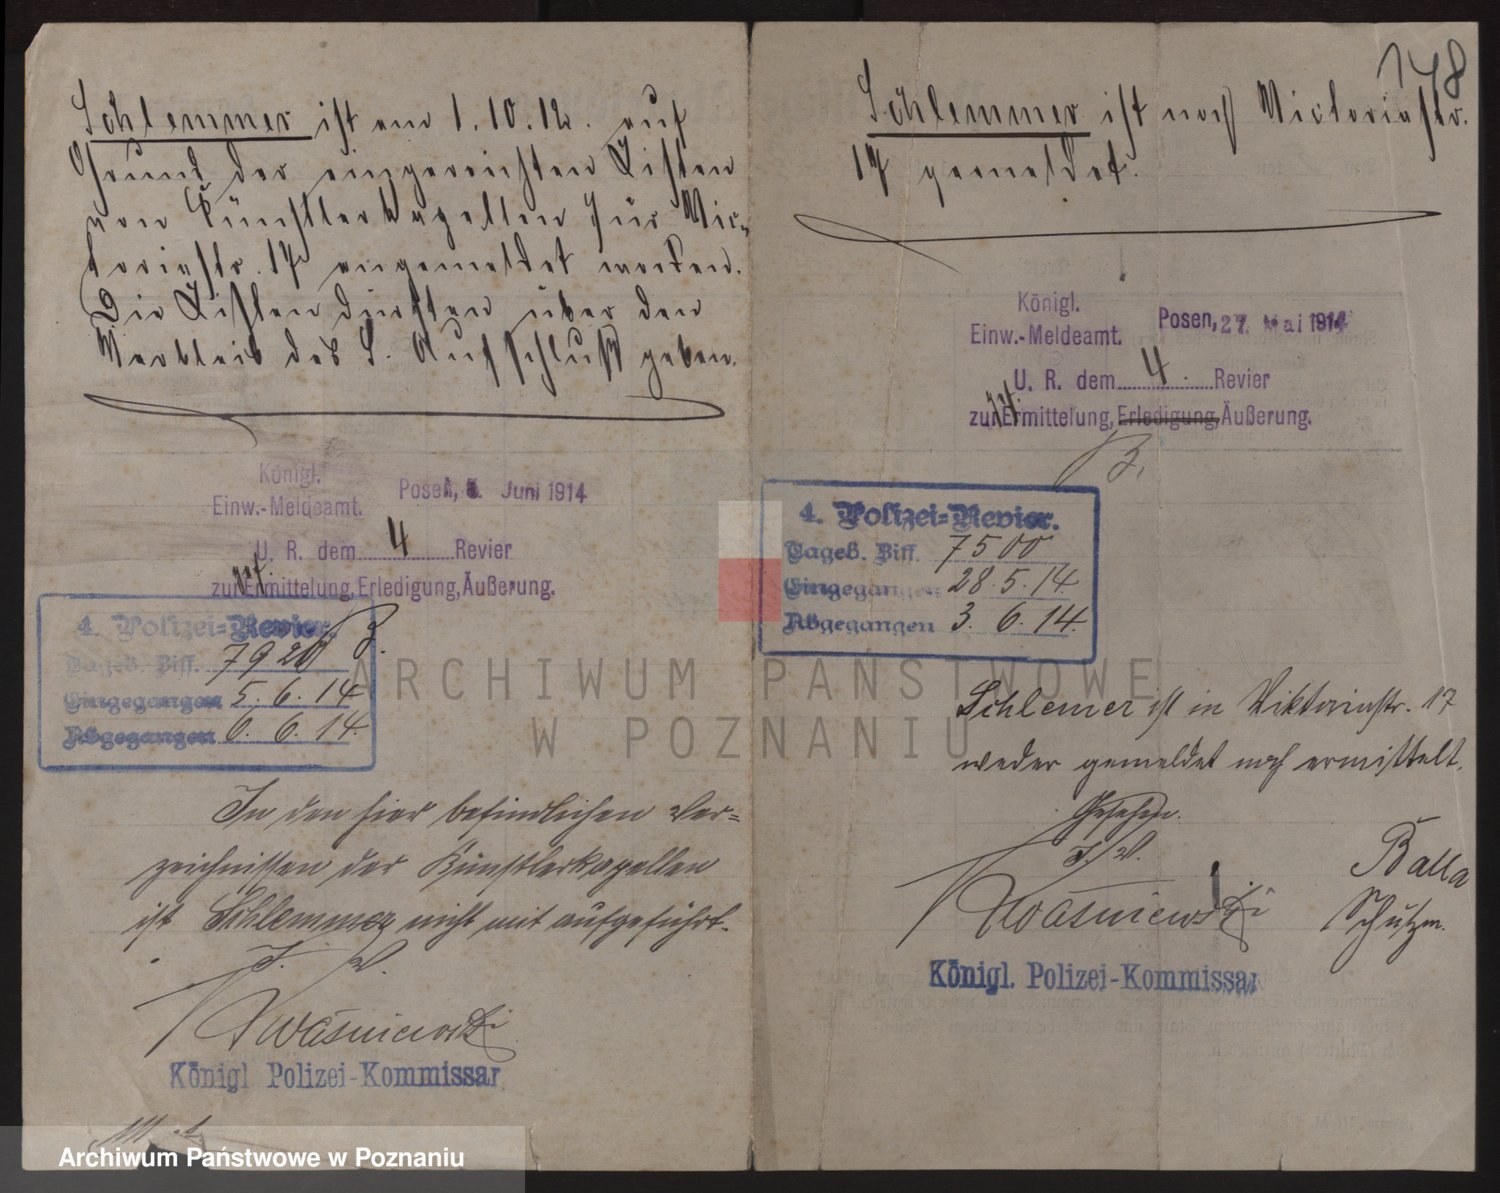 Schlemmer ist am 1.10.12. auf
Grund der eingereichten Listen
von Künstlerkapellen für Vic-
toriastr. 17 angemeldet worden.
Die Listen dürften über den
Verbleib des S. Aufschluß geben.
Königl.
Einw.-Meldeamt.
Posen, 5. Juni 1914
U. R. dem 4 Revier
zur Ermittelung, Erledigung, Äußerung.
4. Polizei-Revier.
Tageb. Ziff. 7920
Eingegangen 5. 6. 14
Abgegangen 6. 6. 14.
In den hier befindlichen Ver=
zeichnissen der Künstlerkapellen
ist Schlemmer nicht mit aufgeführt.
J. V.
Kwasniewski
Königl Polizei-Kommissar
148
Schlemmer ist noch Victoriastr.
17 gemeldet.
Königl.
Einw.-Meldeamt.
Posen, 27. Mai 1914
U. R. dem 4. Revier
zur Ermittelung, Erledigung, Äußerung.
4. Polizei=Revier.
Tageb. Ziff. 7500
Eingegangen 28. 5. 14.
Abgegangen 3. 6. 14.
Schlemer ist in Viktoriastr. 17
weder gemeldet noch ermittelt.
Gesehen.
J. V.
Kwasniewski
Balla
Schutzm.
Königl. Polizei-Kommissar
ARCHIWUM PAŃSTWOWE
W POZNANIU
Archiwum Państwowe w Poznaniu